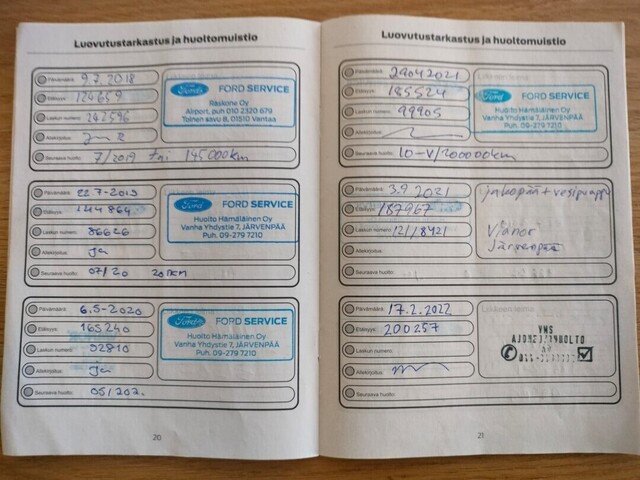 Luovutustarkastus ja huoltomuistio
Päivämäärä: 9.7.2018
Etäisyys: 124659
Laskun numero: 242596
Allekirjoitus:
Seuraava huolto: 7/2019 tai 145000km
Ford FORD SERVICE
Räskone Oy
Airport, puh 010 2320 679
Toinen savu 8, 01510 Vantaa
Päivämäärä: 22.7-2019
Etäisyys: 144864
Laskun numero: 86626
Allekirjoitus: Ja
Seuraava huolto: 07/20
Ford FORD SERVICE
Huolto Hämäläinen Oy
Vanha Yhdystie 7, JÄRVENPÄÄ
Puh. 09-279 7210
Päivämäärä: 6.5-2020
Etäisyys: 165240
Laskun numero: 92810
Allekirjoitus: Ja
Seuraava huolto: 05/202.
Ford FORD SERVICE
Huolto Hämäläinen Oy
Vanha Yhdystie 7, JÄRVENPÄÄ
Puh. 09-279 7210
20
Luovutustarkastus ja huoltomuistio
Päivämäärä: 29.04.2021
Etäisyys: 185524
Laskun numero: 99905
Allekirjoitus:
Seuraava huolto: 10-V/200000km
Ford FORD SERVICE
Huolto Hämäläinen Oy
Vanha Yhdystie 7, JÄRVENPÄÄ
Puh. 09-279 7210
Päivämäärä: 3.9.2021
Etäisyys: 187967
Laskun numero: 121/18421
Allekirjoitus:
Seuraava huolto:
jakopää + vesipumppu
Vianor
Järvenpää
Päivämäärä: 17.2.2022
Etäisyys: 200257
Laskun numero:
Allekirjoitus:
Seuraava huolto:
21